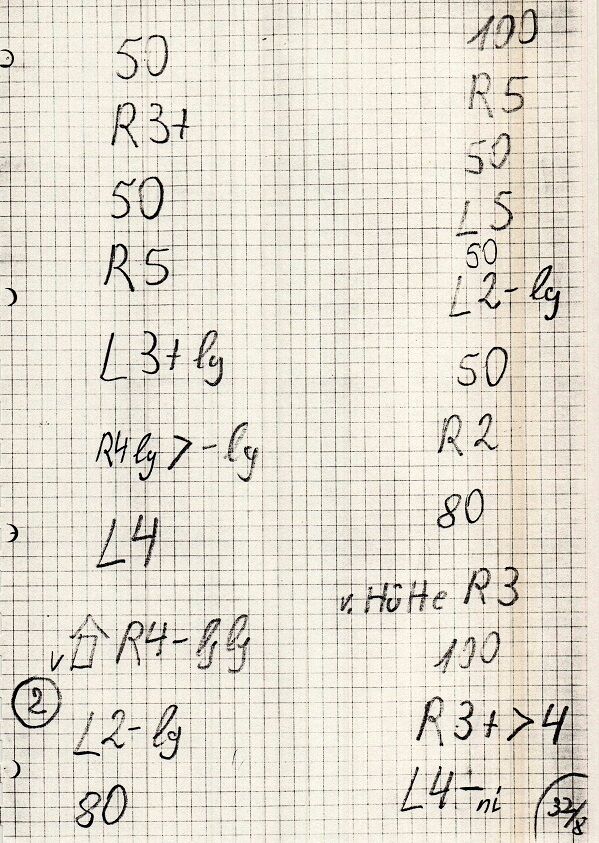 50
R3+
50
R5
L3+ lg
R4lg > - lg
L4
v R4- lglg
2
L2- lg
80
100
R5
50
L5
50
L2- lg
50
R2
80
v. Hütte R3
100
R3+ > 4
L4- ni
32/8